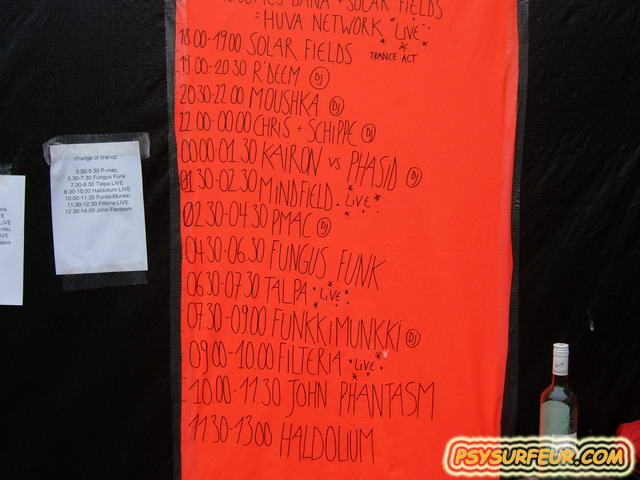 SOLAR FIELDS
=HUVA NETWORK *LIVE*
18.00-19.00 SOLAR FIELDS TRANCE ACT
19.00-20.30 R'DEEM DJ
20.30-22.00 MOUSHKA DJ
22.00-00.00 CHRIS + SCHIPPE DJ
00.00-01.30 KAIRON vs PHASID DJ
01.30-02.30 MINDFIELD *LIVE*
02.30-04.30 PMAC DJ
04.30-06.30 FUNGUS FUNK
06.30-07.30 TALPA *LIVE*
07.30-09.00 FUNKKIMUNKKI DJ
09.00-10.00 FILTERIA *LIVE*
10.00-11.30 JOHN PHANTASM
11.30-13.00 HALDOLIUM
change of line-up
3.30-5.30 P-mac
5.30-7.30 Fungus Funk
7.30-8.30 Talpa LIVE
8.30-10.00 Haldolium LIVE
10.00-11.30 FunkkiMunkki
11.30-12.30 Filteria LIVE
12.30-14.00 John Fantasm
PSYSURFEUR.COM